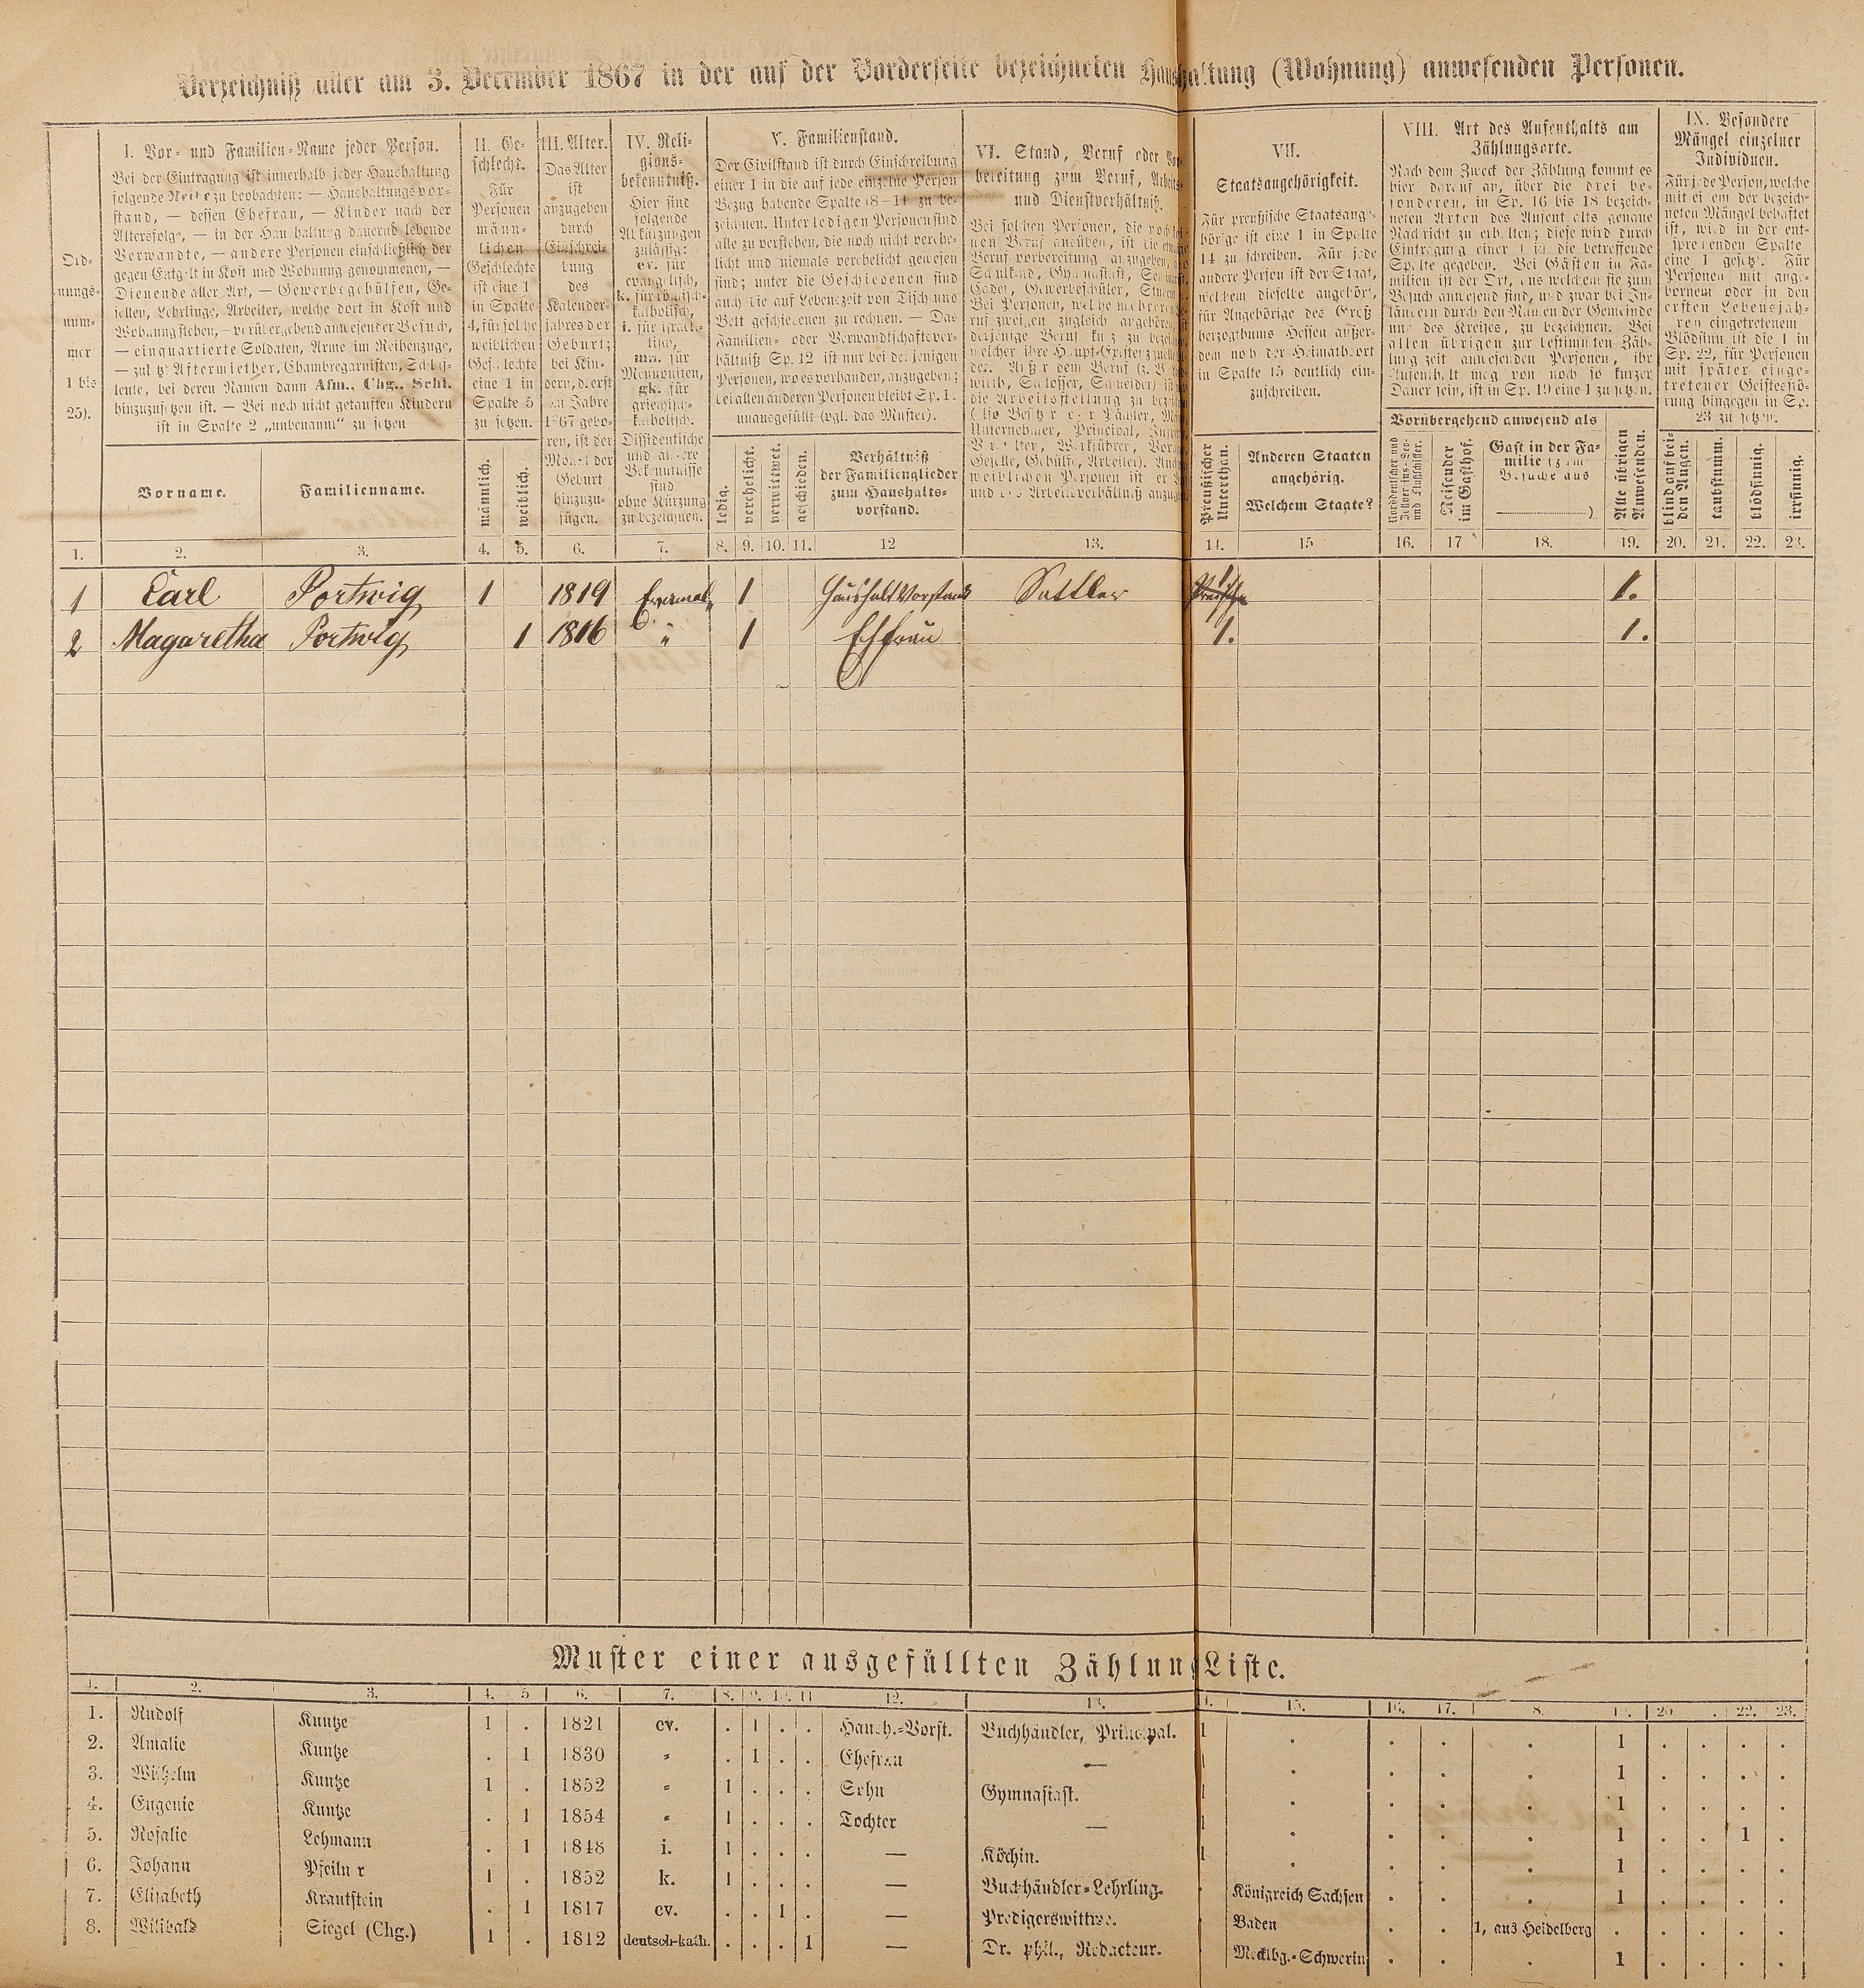 Verzeichniß aller am 3. December 1867 in der auf der Vorderseite bezeichneten Haushaltung (Wohnung) anwesenden Personen.
Ord-
nungs-
num-
mer
1 bis
25).
I. Vor- und Familien-Name jeder Person.
Bei der Eintragung ist innerhalb jeder Haushaltung
folgende Reihe zu beobachten: — Haushaltungsvor-
stand, — dessen Ehefrau, — Kinder nach der
Altersfolge, — in der Haushaltung dauernd lebende
Verwandte, — andere Personen einschließlich der
gegen Entgelt in Kost und Wohnung genommenen, —
Dienende aller Art, — Gewerbsgehülfen, Ge-
sellen, Lehrlinge, Arbeiter, welche dort in Kost und
Wohnung stehen, — vorübergehend anwesender Besuch,
— einquartierte Soldaten, Arme im Reihenzuge,
— zuletzt Aftermiether, Chambregarnisten, Schlaf-
leute, bei deren Namen dann Afm., Chg., Schl.
hinzuzusetzen ist. — Bei noch nicht getauften Kindern
ist in Spalte 2 „unbenannt“ zu setzen
Vorname.
Familienname.
II. Ge-
schlecht.
Für
Personen
männ-
lichen
Geschlechts
ist eine 1
in Spalte
4, für solche
weiblichen
Geschlechts
eine 1 in
Spalte 5
zu setzen.
männlich.
weiblich.
III. Alter.
Das Alter
ist
anzugeben
durch
Einschrei-
bung
des
Kalender-
jahres der
Geburt;
bei Kin-
dern, d. erst
im Jahre
1867 gebo-
ren, ist der
Monat der
Geburt
hinzuzu-
fügen.
IV. Reli-
gions-
bekenntniß.
Hier sind
folgende
Abkürzungen
zulässig:
ev. für
evangelisch,
k. für römisch-
katholisch,
i. für israeli-
tisch,
mn. für
Mennoniten,
gk. für
griechisch-
katholisch.
Dissidentische
und andere
Bekenntnisse
sind
ohne Kürzung
zu bezeichnen.
V. Familienstand.
Der Civilstand ist durch Einschreibung
einer 1 in die auf jede einzelne Person
Bezug habende Spalte (8–11) zu be-
zeichnen. Unter ledigen Personen sind
alle zu verstehen, die noch nicht verehe-
licht und niemals verehelicht gewesen
sind; unter die Geschiedenen sind
auch die auf Lebenszeit von Tisch und
Bett geschiedenen zu rechnen. — Das
Familien- oder Verwandtschaftsver-
hältniß Sp. 12 ist nur bei denjenigen
Personen, wo es vorhanden, anzugeben;
bei allen anderen Personen bleibt Sp. 12
unausgefüllt (vgl. das Muster).
ledig.
verehelicht.
verwittwet.
geschieden.
Verhältniß
der Familienglieder
zum Haushalts-
vorstand.
VI. Stand, Beruf oder Vor-
bereitung zum Beruf, Arbeits-
und Dienstverhältniß.
VII.
Staatsangehörigkeit.
Für preußische Staatsange-
hörige ist eine 1 in Spalte
14 zu schreiben. Für jede
andere Person ist der Staat,
welchem dieselbe angehört,
für Angehörige des Groß-
herzogthums Hessen außer-
dem noch der Heimathsort
in Spalte 15 deutlich ein-
zuschreiben.
Preußischer
Unterthan.
Anderen Staaten
angehörig.
Welchem Staate?
VIII. Art des Aufenthalts am
Zählungsorte.
Nach dem Zweck der Zählung kommt es
hier darauf an, über die drei be-
sonderen, in Sp. 16 bis 18 bezeich-
neten Arten des Aufenthalts genaue
Nachricht zu erhalten; diese wird durch
Eintragung einer 1 in die betreffende
Spalte gegeben. Bei Gästen in Fa-
milien ist der Ort, aus welchem sie zum
Besuch anwesend sind, und zwar bei In-
ländern durch den Namen der Gemeinde
und des Kreises, zu bezeichnen. Bei
allen übrigen zur bestimmten Zäh-
lungszeit anwesenden Personen, ihr
Aufenthalt mag von noch so kurzer
Dauer sein, ist in Sp. 19 eine 1 zu setzen.
Vorübergehend anwesend als
Reisender
im Gasthof.
Gast in der Fa-
milie (zum
Besuche aus
)
Alle übrigen
Anwesenden.
IX. Besondere
Mängel einzelner
Individuen.
Für jede Person, welche
mit einem der bezeich-
neten Mängel behaftet
ist, wird in der ent-
sprechenden Spalte
eine 1 gesetzt. Für
Personen mit ange-
bornem oder in den
ersten Lebensjah-
ren eingetretenem
Blödsinn ist die 1 in
Sp. 22, für Personen
mit später einge-
tretener Geistesstö-
rung hingegen in Sp.
23 zu setzen.
blind auf bei-
den Augen.
taubstumm.
blödsinnig.
irrsinnig.
1. 2. 3. 4. 5. 6. 7. 8. 9. 10. 11. 12 13. 14. 15 16. 17 18. 19. 20. 21. 22. 23.
1 Carl Portwig 1 1819 1 Haushalt Vorstand Sattler 1 1.
2 Magaretha Portwig 1 1816 " 1 Ehfrau 1. 1.
Muster einer ausgefüllten Zählungsliste.
1. 2. 3. 4. 5 6. 7. 8. 9. 10. 11 12. 13. 14. 15. 16. 17. 8. 19. 20 22. 23.
1. Rudolf Kuntze 1 . 1821 ev. . 1 . . Haush.-Vorst. Buchhändler, Principal. 1 . . . . 1 . . . .
2. Amalie Kuntze . 1 1830 " . 1 . . Ehefrau — 1 . . . . 1 . . . .
3. Wilhelm Kuntze 1 . 1852 " 1 . . . Sohn Gymnasiast. 1 . . . . 1 . . . .
4. Eugenie Kuntze . 1 1854 " 1 . . . Tochter — 1 . . . . 1 . . 1 .
5. Rosalie Lehmann . 1 1848 i. 1 . . . — Köchin. 1 . . . . 1 . . . .
6. Johann Pfeilner 1 . 1852 k. 1 . . . — Buchhändler-Lehrling. . Königreich Sachsen . . . 1 . . . .
7. Elisabeth Krautstein . 1 1817 ev. . . 1 . — Predigerswittwe. Baden . . 1, aus Heidelberg . . . . .
8. Wilibald Siegel (Chg.) 1 . 1812 deutsch-kath. . . . 1 — Dr. phil., Redacteur. Mecklbg.-Schwerin . . . 1 . . . .